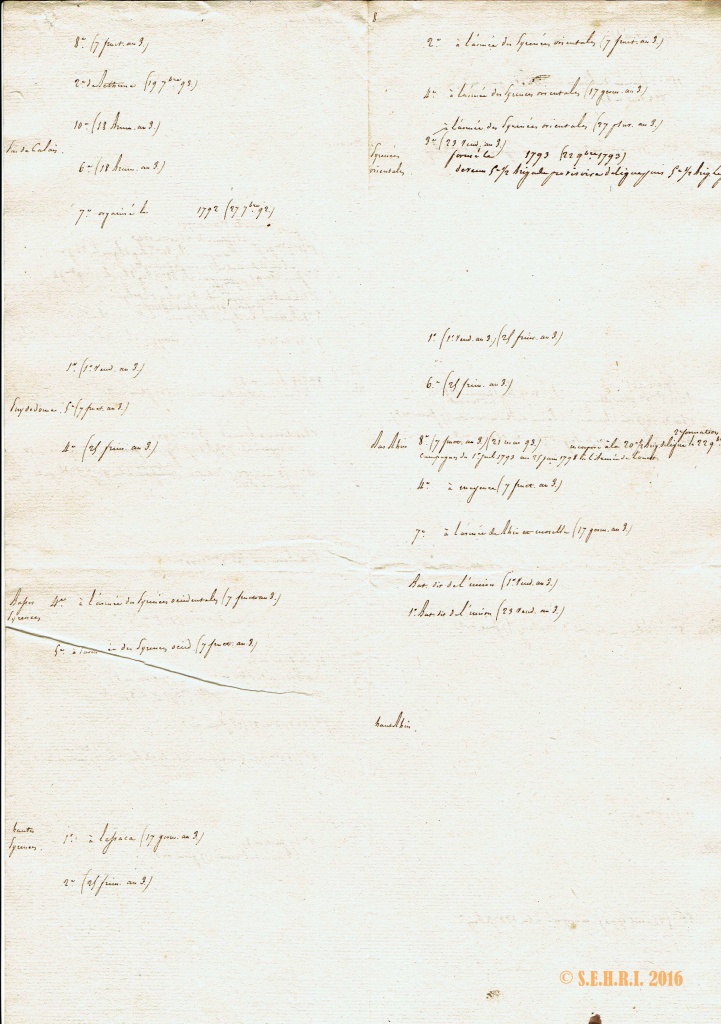 8
8e (7 fruct. an 3.)
2e de Bethune (19 7bre 93.)
10e (18 brum. an 3.)
Pas de Calais.
6e (18 brum. an 3.)
7e organisé le 1792 (27 7bre 92)
1er (1er Vend. an 3.)
Puy de dome. 5e (7 fruct. an 3.)
4e (25 frim. an 3.)
Basses Pyrenees
4e à l'armée des Pyrénées occidentales (7 fruct an 3.)
5e à l'armée des Pyrenees occid. (7 fruct. an 3.)
hautes Pyrenees.
1er à (17 germ. an 3.)
2e (25 frim. an 3.)
2e à l'armée des Pyrénées orientales (7 fruct. an 3.)
4e à l'armée des Pyrenees orientales (17 germ. an 3.)
à l'armée des Pyrénées orientales (27 pluv. an 3.)
3e (23 Vend. an 3.)
Pyrenées orientales
formé le 1793 (22 9bre 1793)
devenu 5e 1/2 brigade provisoire de ligne puis 5e 1/2 brig
1er (1er Vend. an 3.) (25 frim. an 3.)
6e (25 frim. an 3.)
2e formation
Bas Rhin 8e (7 fruct. an 3.) (21 mai 93.) incorporé à la 20e 1/2 brig de ligne le 22 9bre
Campagnes du 1er Juil 1793 au 25 Janv 1798 à l'Armée de l'ouest
4e à mayence (7 fruct. an 3.)
7e à l'armée de Rhin et moselle (17 germ. an 3.)
Bat. dit de l'union (1er Vend. an 3.)
1er Bat. dit de l'union (23 Vend. an 3.)
haut Rhin.
© S.E.H.R.I. 2016